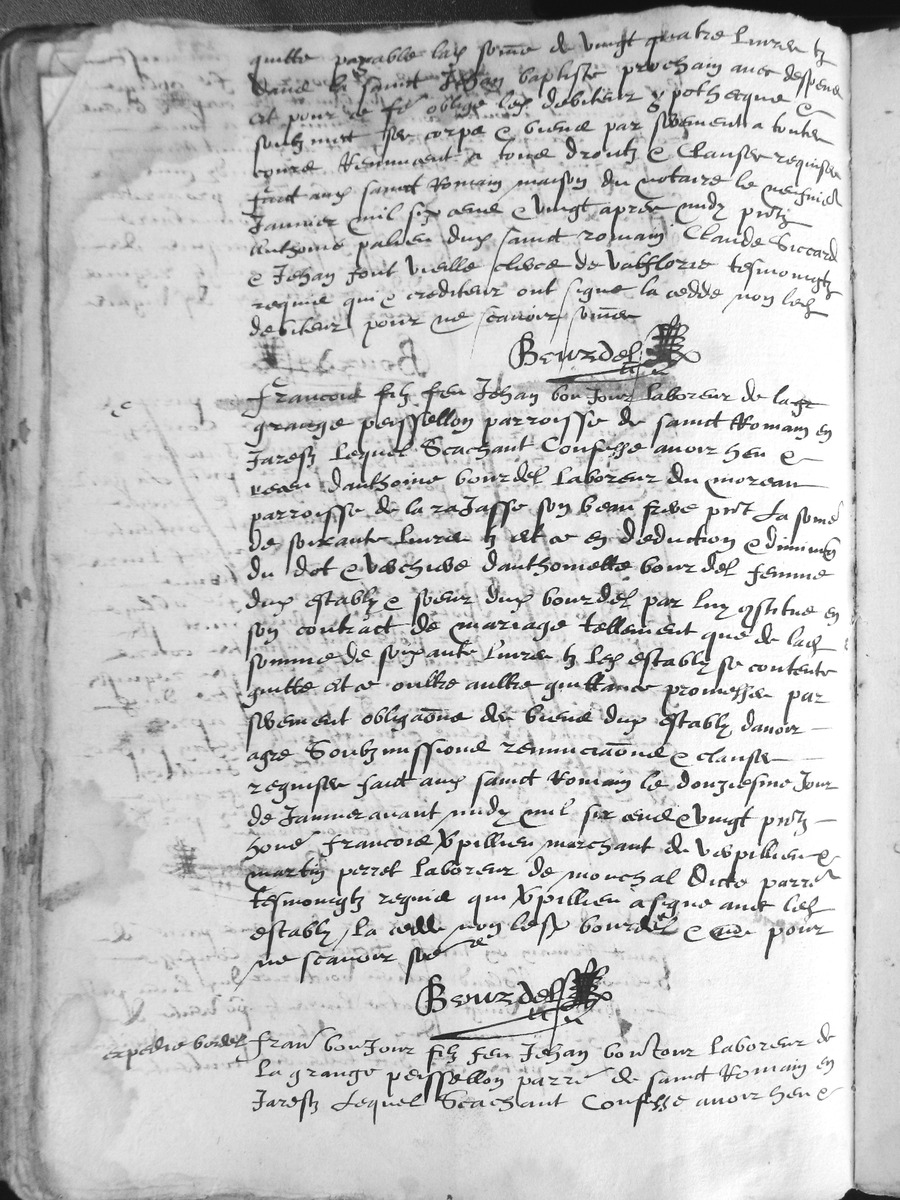 quitte payable lad somme de vingt quatre livres tz
dans la sainct Jehan baptiste prochain avec despens
et pour ce fe oblige led debiteur ypothecque &
soubzmect ses corps & biens par serement a toutes
cours Renuncent a tous droictz & clauses requises
faict aud sainct Romain maison du notaire le neufvie
Janvier mil six cens & vingt apres midy pntz
Anthoine palien dud sainct romain Claude Siccard
& Jehan font vieille clerc de valflorie tesmoingtz
requis qui & crediteur ont signe la cedde non led
debiteur pour ne scavoir somes
Bourdel
Francois filz feu Jehan bon Jour laboreur de la
grange peyssellon parroisse de sainct Romain en
Jarestz Lequel Scachant Confesse avoir heu &
receu danthoine bourdel laboreur du moreau
parroisse de la raJasse son beau frere pnt La some
de soixante livres tz et ce en deduction & diminun
du dot & verchiere danthoinette bourdel femme
dud estably & soeur dud bourdel par luy constitue en
son contract de mariage tellement que de lad
somme de soixante livres tz led estably se contente
quitte et ce oultre aultre quittance promesses par
serement obligaons de biens dud estably davoir
agre Soubzmissions renunciaons & clauses
requises faict aud sainct Romain le douziesme Jour
de Janvier avant midy mil six cens & vingt pntz
hone Francois Vpillieu marchant de vespillieu &
martin perret laboreur de monchal dicte parre
tesmoingtz requis qui Vpillieu a signe avec led
estably la cedde non lesd bourdel & pour
ne scavoir some
Bourdel
expedie bordel
Fran bonJour filz feu Jehan bonJour laboreur de
La grange peyssellon parre de sainct Romain en
Jarestz Lequel Scachant Confesse avoir heu &